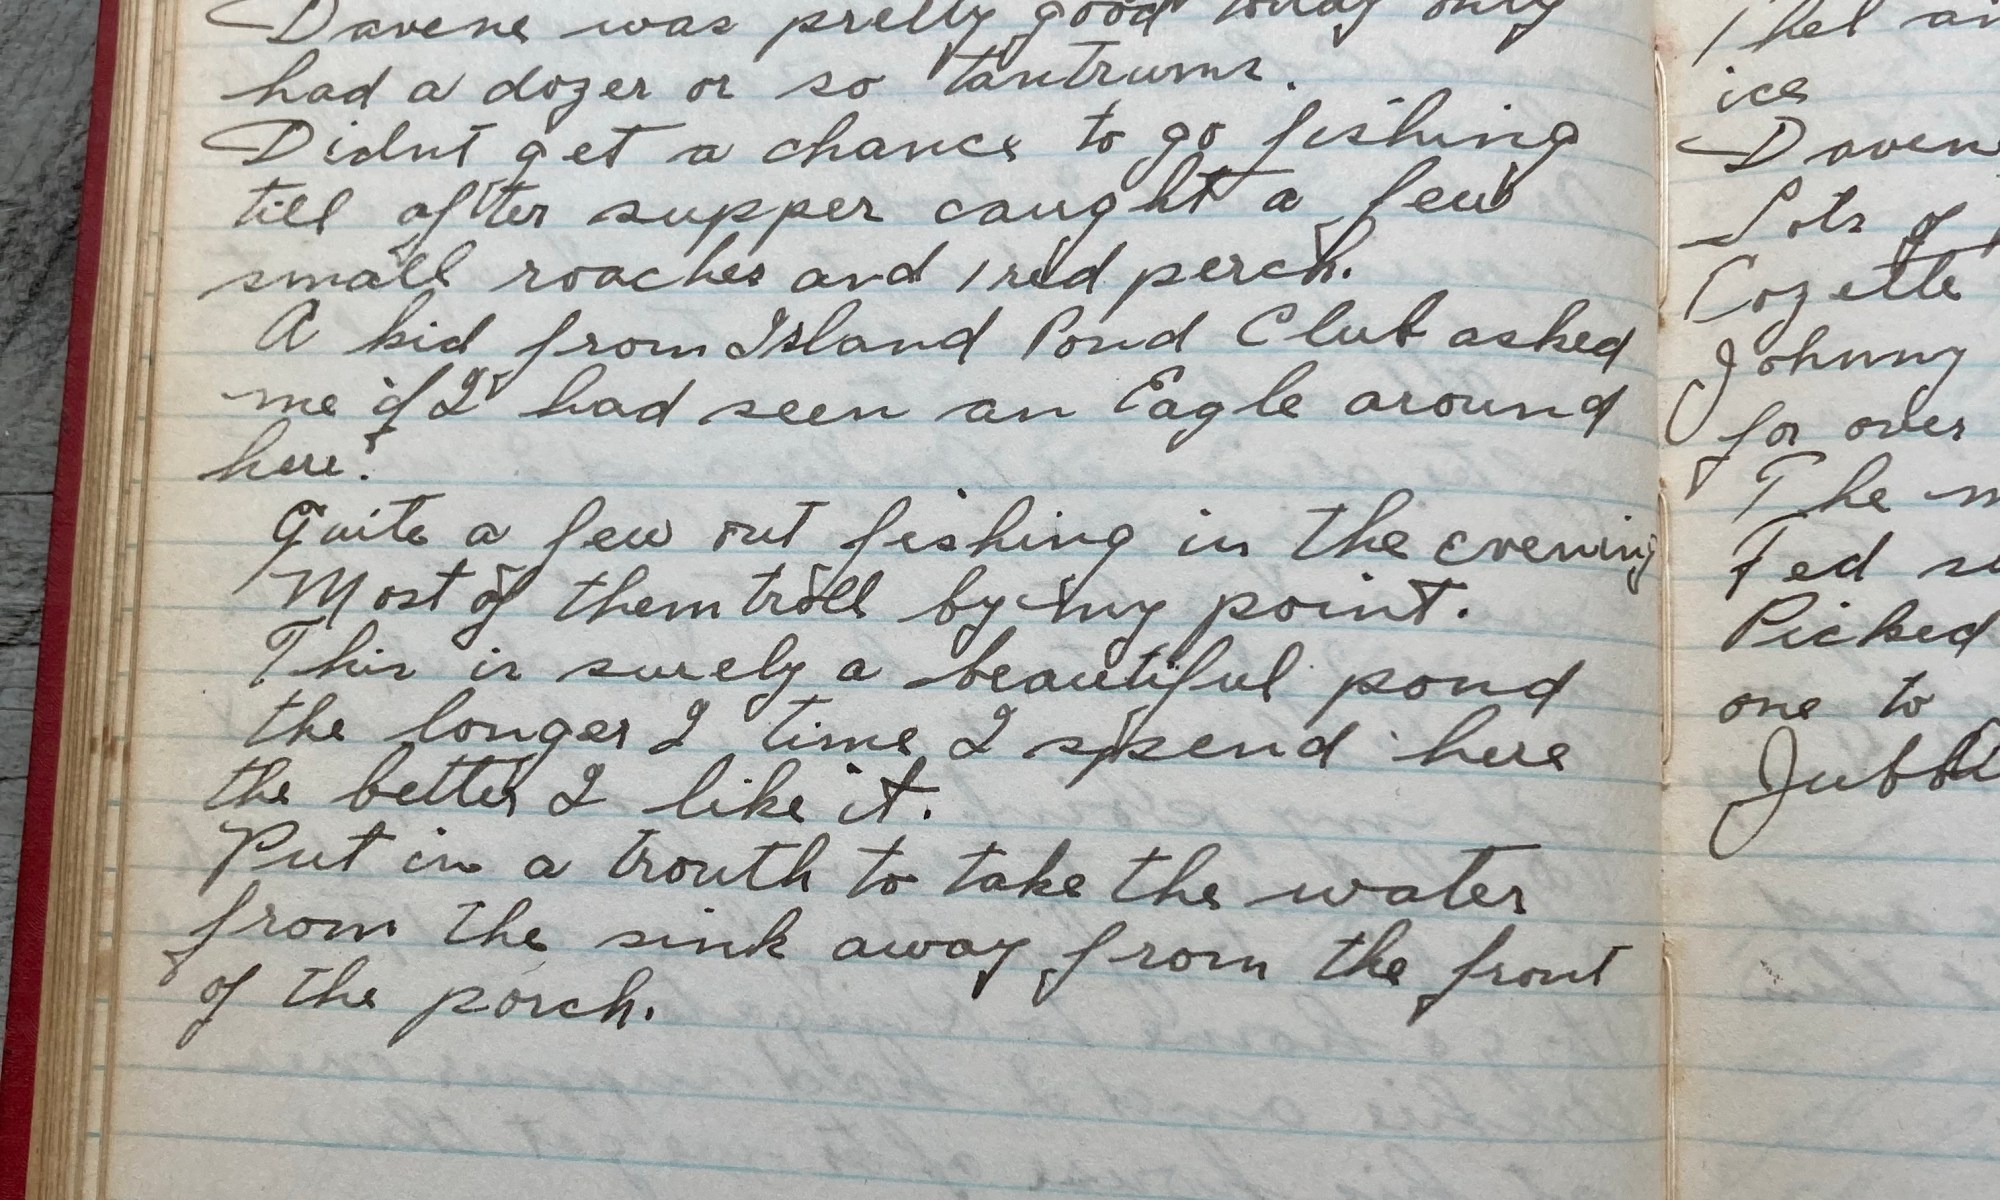 Davene was pretty good today only
had a dozen or so tantrums.
Didnt get a chance to go fishing
till after supper caught a few
small roaches and 1 red perch.
A kid from Island Pond Club asked
me if I had seen an Eagle around
here?
Quite a few out fishing in the evening
Most of them troll by my point.
This is surely a beautiful pond
the longer I time I spend here
the better I like it.
Put in a trouth to take the water
from the sink away from the front
of the porch.
ice
Lots of
Cozette
Johnny
for over
The
Fed
Picked
one to